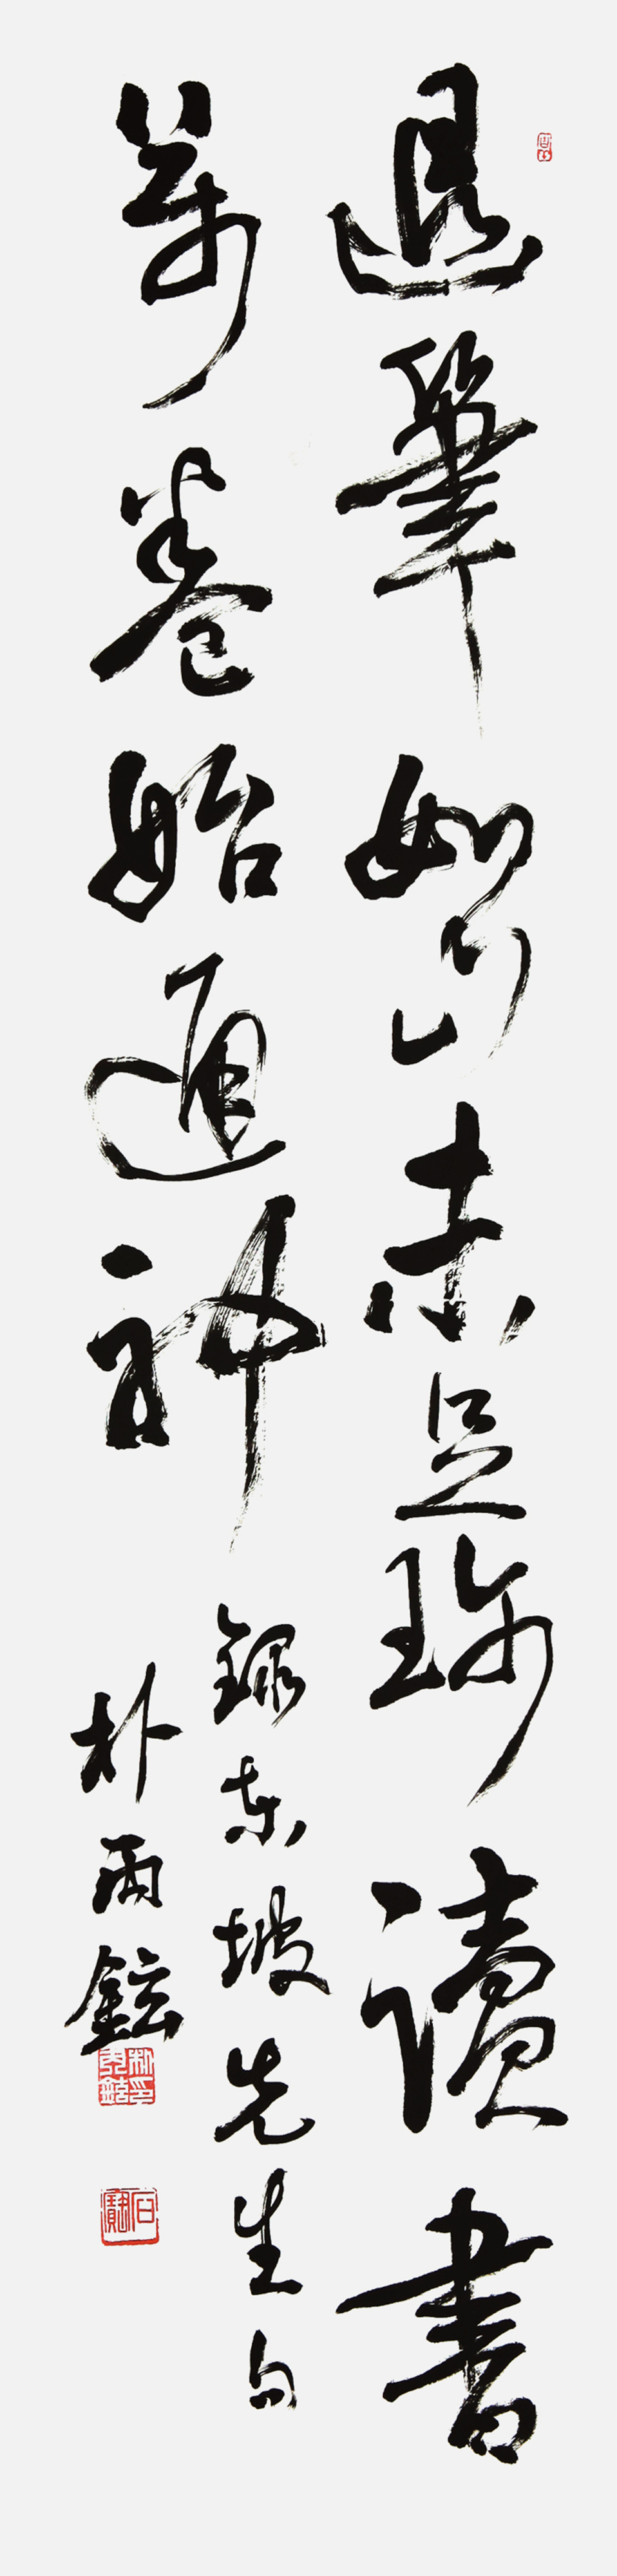 退筆如山未足珍讀書
萬卷始通神
錄東坡先生句
朴丙鉉